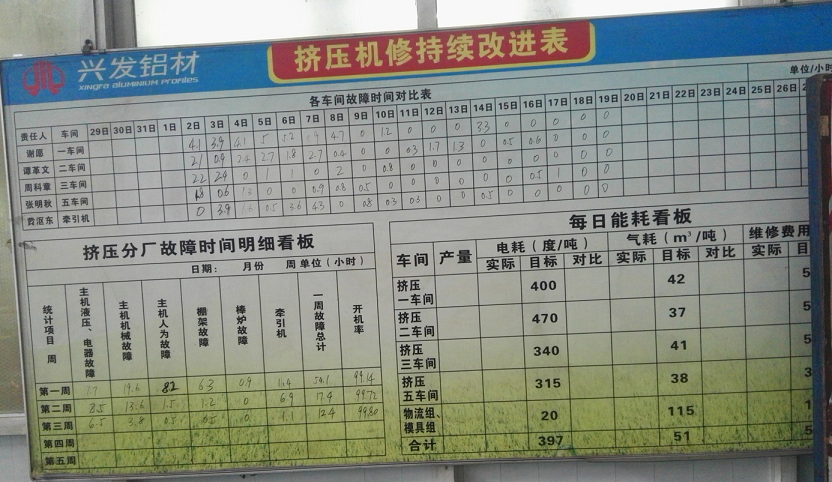 兴发铝材
XINGFA ALUMINIUM PROFILES
挤压机修持续改进表
各车间故障时间对比表
单位/小时
责任人 车间 29日 30日 31日 1日 2日 3日 4日 5日 6日 7日 8日 9日 10日 11日 12日 13日 14日 15日 16日 17日 18日 19日 20日 21日 22日 23日 24日 25日 26日
谢愿 一车间 4.1 3.9 4.1 5 5.2 1.9 4.7 0 1.2 0 0 0 3.3 0 0 0 0 0
谭革文 二车间 2.1 0.9 2.7 1.8 2.7 0.4 0 0 0.3 1.7 1.3 0 0.5 0.6 0 0 0
周科章 三车间 2.2 2.4 0 1 1 0 2 0 0.8 0 0 0 0 0 0 0 0 0
张明秋 五车间 1.8 0.6 0 0 0.9 0.8 0.5 0 0 0 0 0 0 0.5 1 0 0
东 牵引机 0 3.9 0.5 3.6 4.3 0 0.8 0.3 0.3 0 0 0.5 0 0 0 0 0
挤压分厂故障时间明细看板
日期: 月份 周 单位（小时）
统计项目 周 主机液压、电器故障 主机机械故障 主机人为故障 棚架故障 棒炉故障 牵引机 一周故障总计 开机率
第一周 7.7 19.6 8.2 6.3 0.9 11.4 54.1 99.14
第二周 8.5 13.6 1.5 1.2 0 6.9 17.4 99.72
第三周 6.5 3.8 0.5 0.5 1.1 12.4 99.80
第四周
第五周
每日能耗看板
车间 产量 电耗（度/吨） 气耗（m³/吨） 维修费用
实际 目标 对比 实际 目标 对比 实际 目标
挤压一车间 400 42
挤压二车间 470 37
挤压三车间 340 41
挤压五车间 315 38
物流组、模具组 20 115
合计 397 51